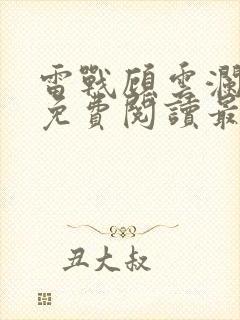 雷戰顧雲瀾
免費閱讀最
丑大叔